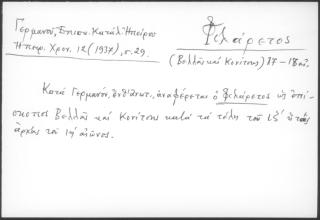 Γερμανοῦ, Ἐπισκ. Κατάλ. Ἠπείρου
Ἠπειρ. Χρον. 12 (1937), σ. 29.
Φιλάρετος
(Βελλᾶς καὶ Κονίτσης) 17 - 18 αἰ.
Κατὰ Γερμανόν, ἔνθ' ἀνωτ., ἀναφέρεται ὁ Φιλάρετος ὡς ἐπί-
σκοπος Βελλᾶς καὶ Κονίτσης κατὰ τὰ τέλη τοῦ ΙΖ' ἢ τὰς
ἀρχὰς τοῦ ΙΗ' αἰῶνος.